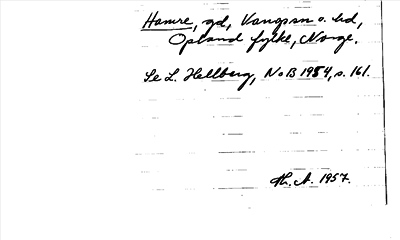 Hamre, gd, Vangssn o. hd,
Opland fylke, Norge.
Se L. Hellberg, NoB 1954, s. 161.
Th. A. 1957.